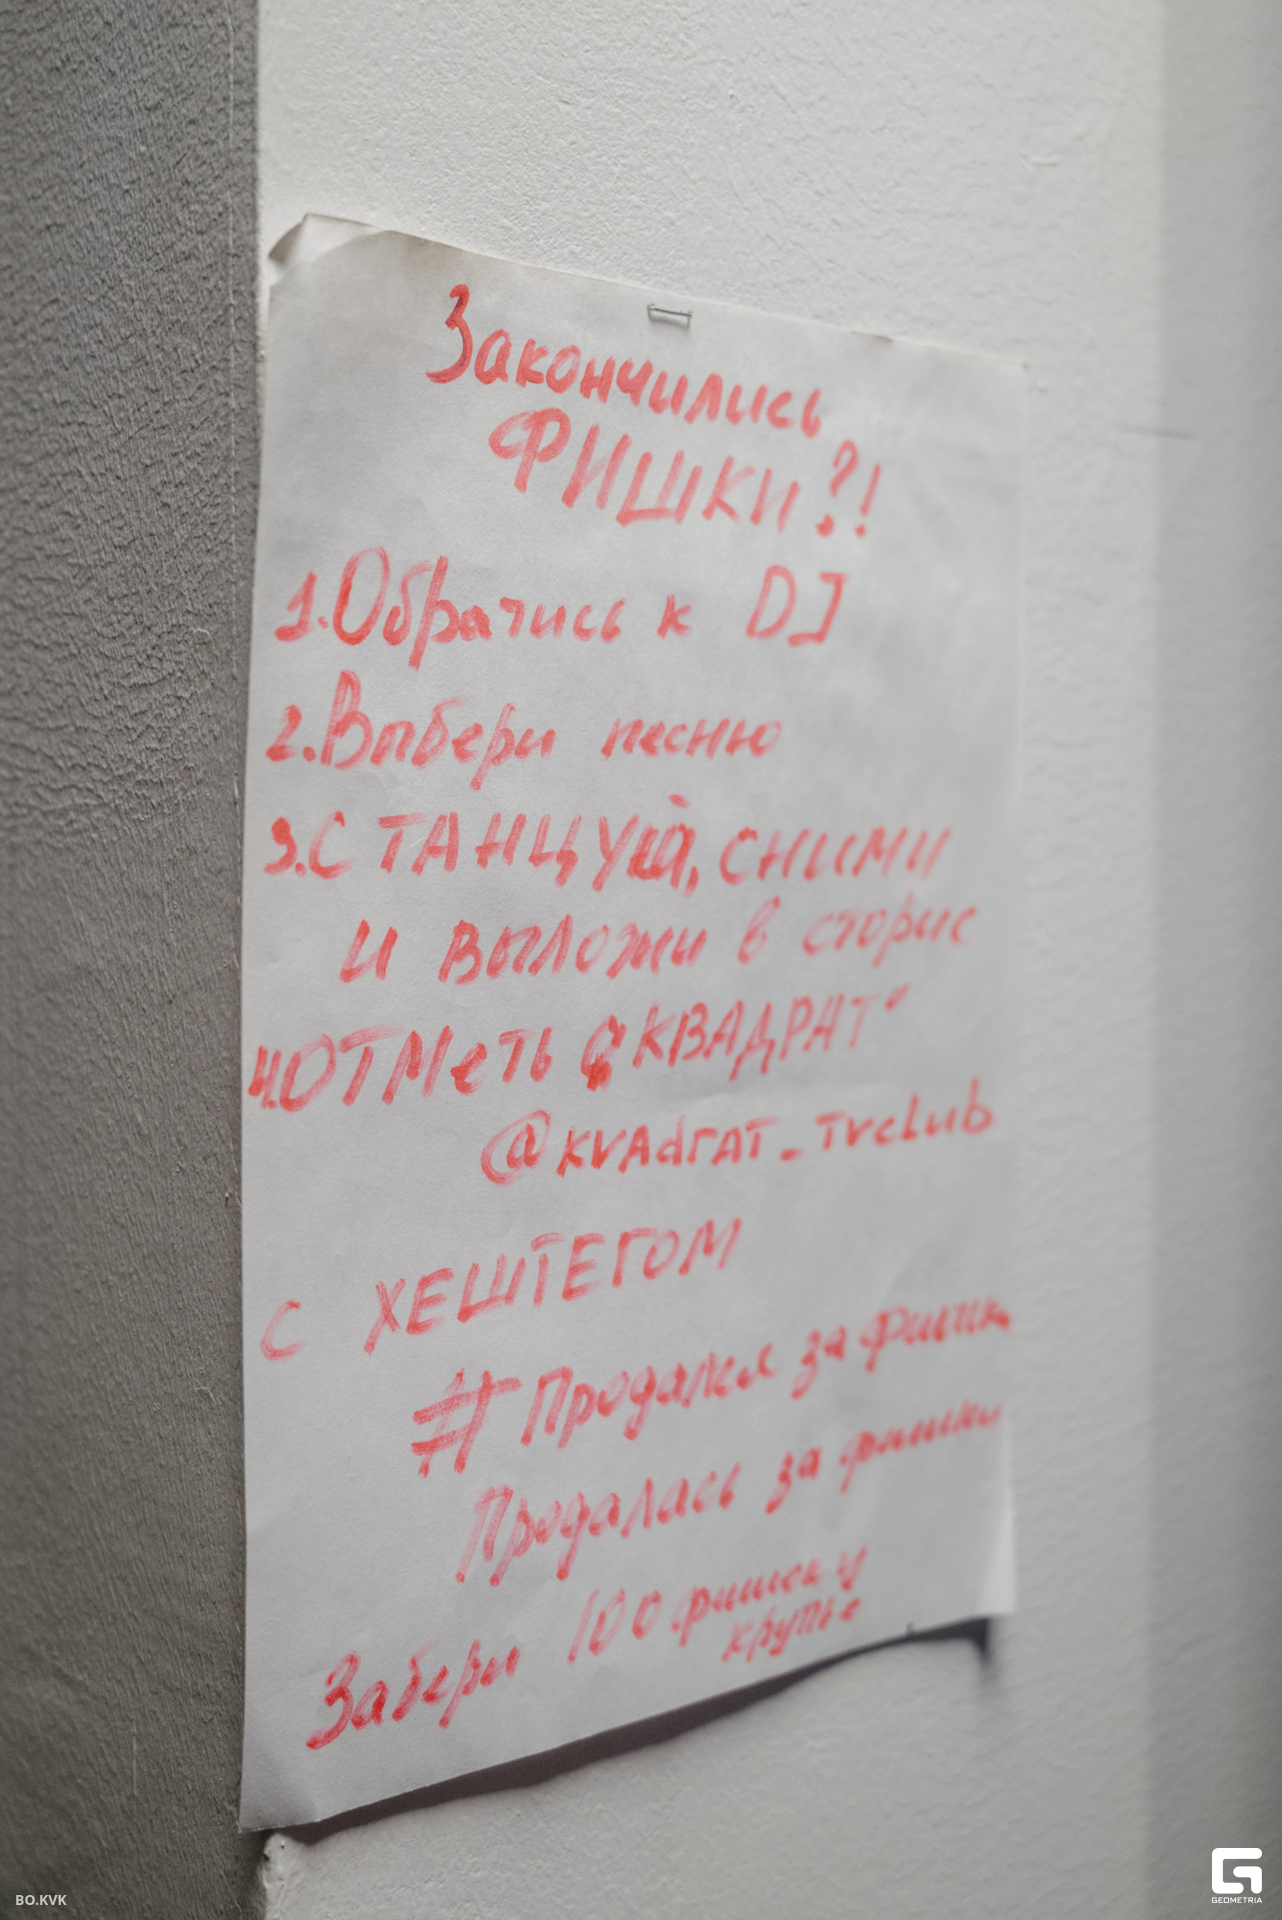 Закончились
ФИШКИ?!
1.Обратись к DJ
2.Выбери песню
3.СТАНЦУЙ, СНИМИ
и выложи в сторис
4.ОТМеть "КВАДРАТ"
@kvadrat_tvclub
С ХЕШТЕГОМ
#Продался за фишки
Продалась за фишки
Забери 100 фишек у
крупье
BO.KVK
GEOMETRIA